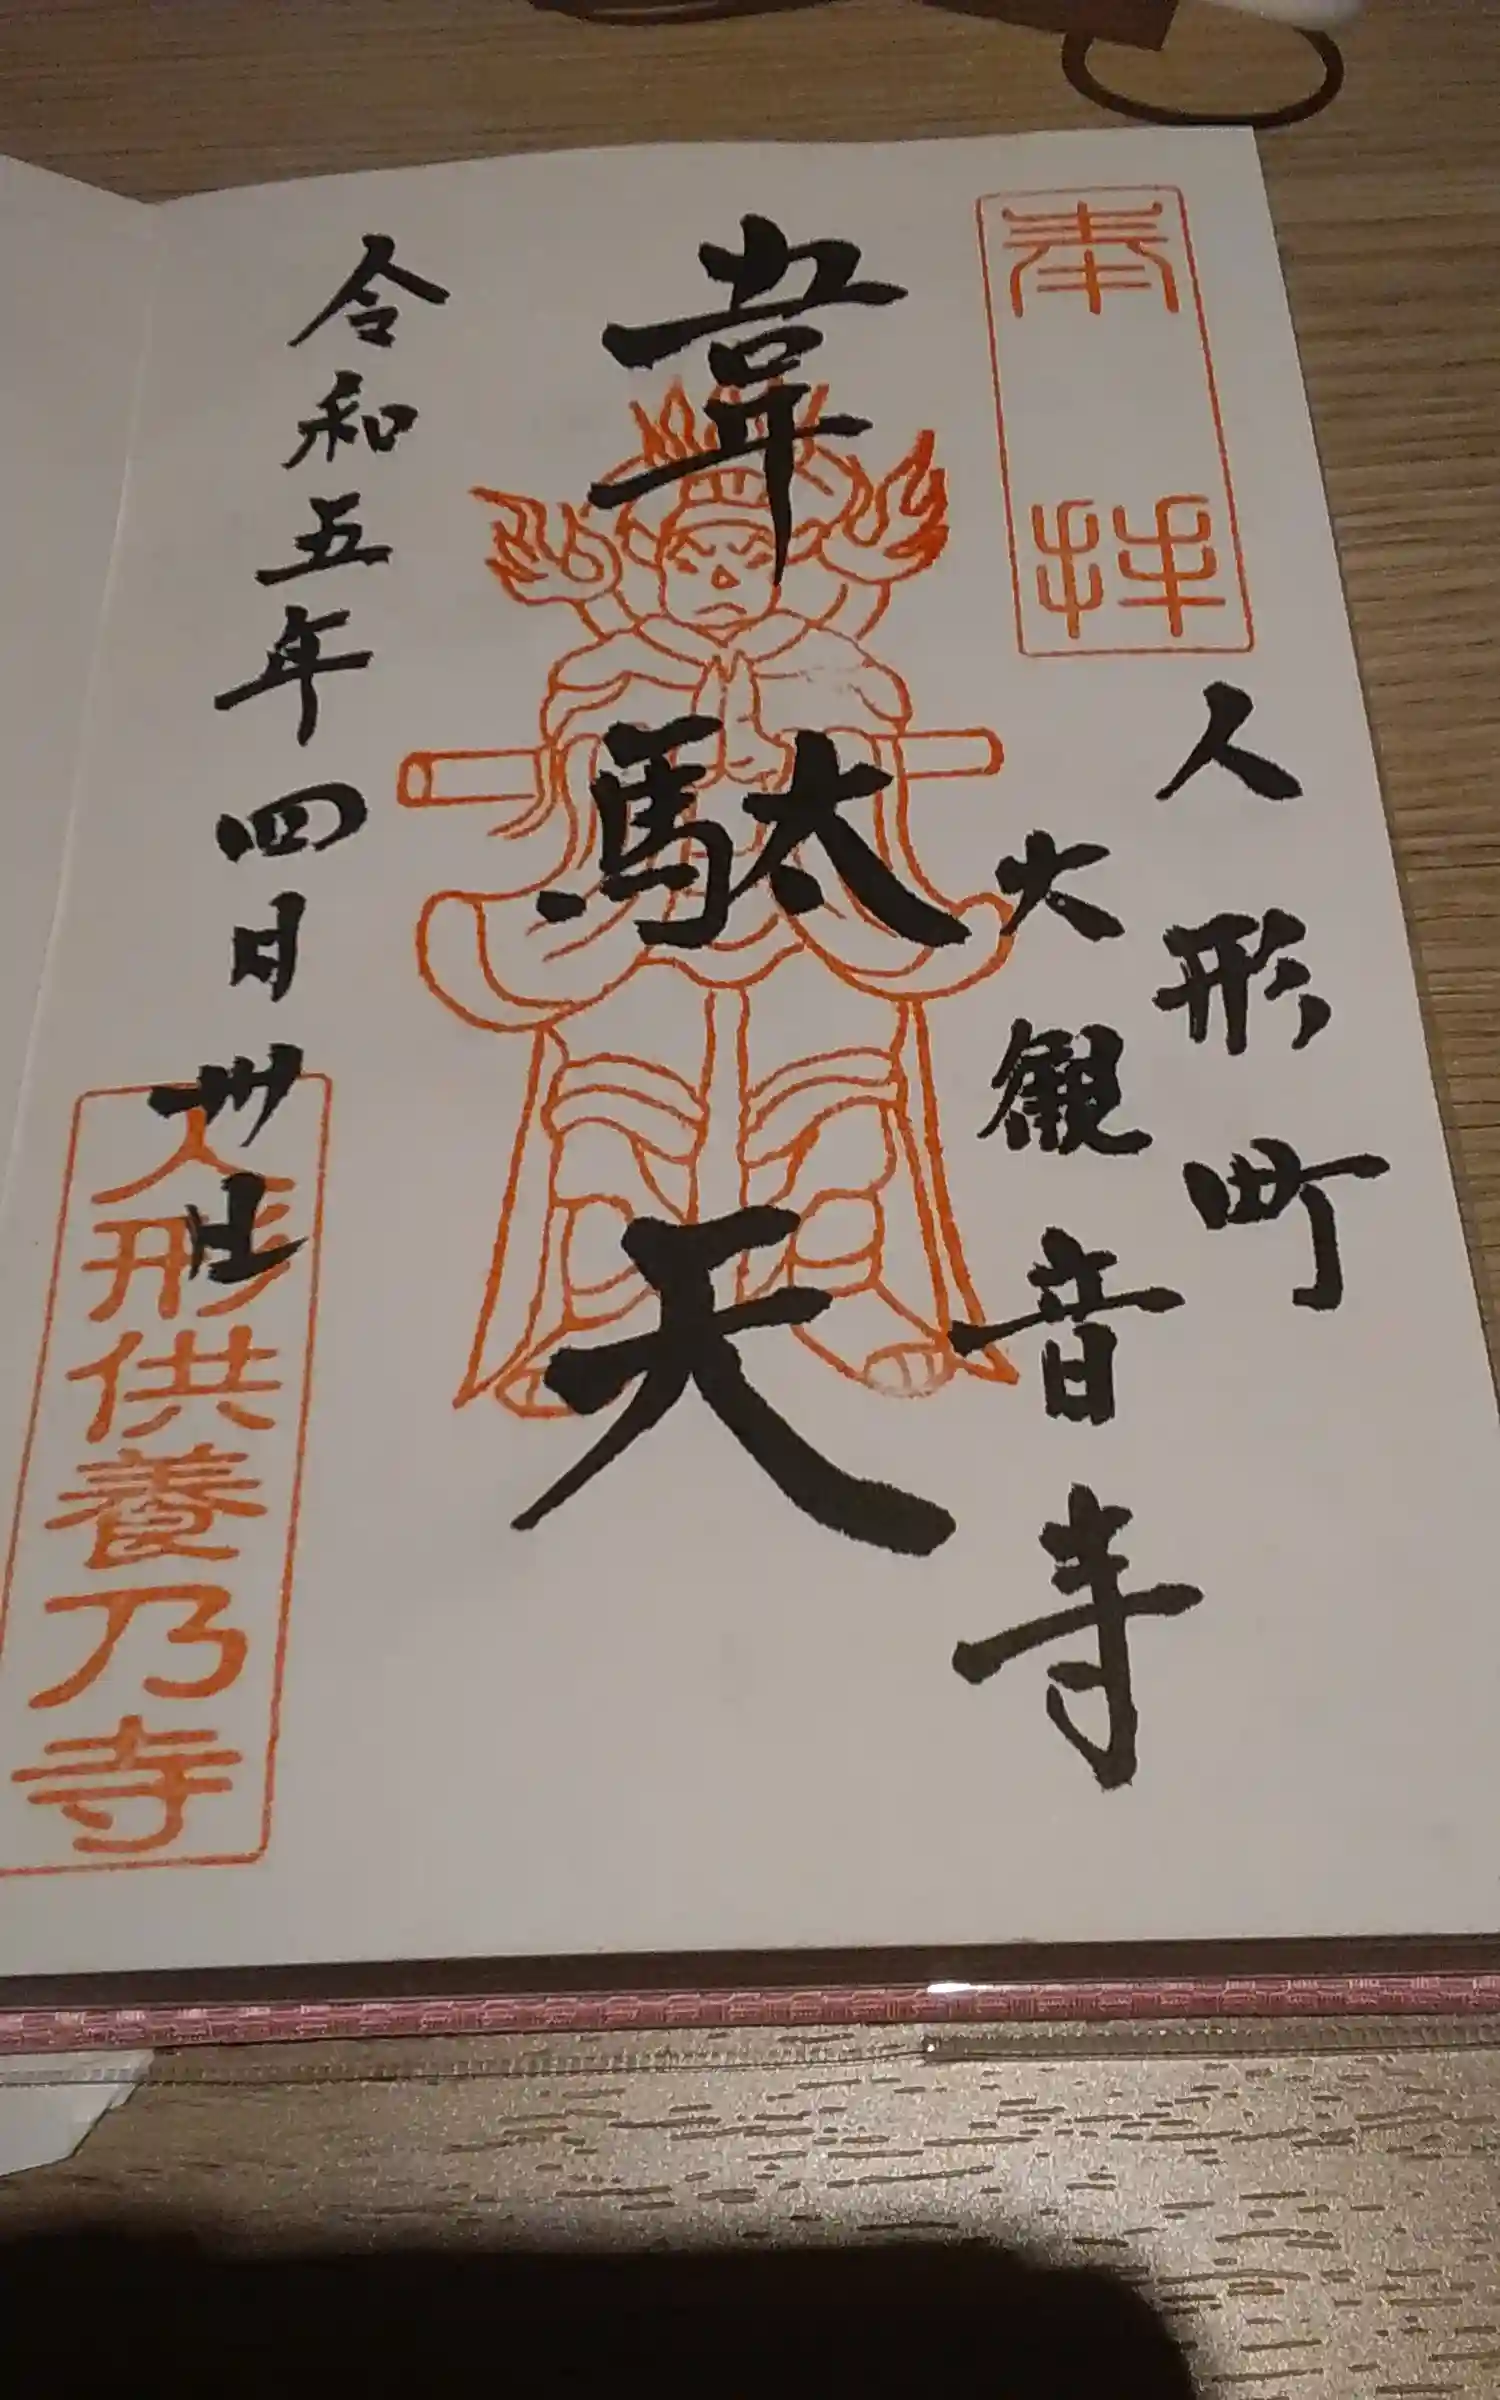 奉拝
人形町
大観音寺
韋駄天
令和五年四月卅日
人形供養乃寺